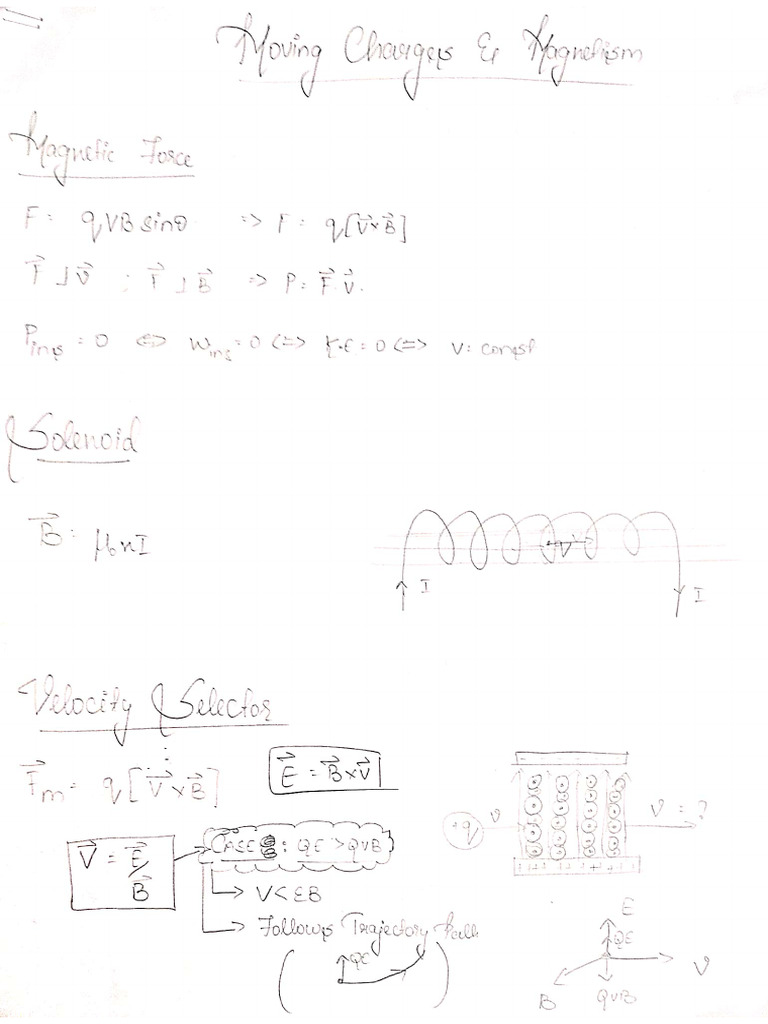 Moving Charges & Magnetism
Magnetic Force
F = qVB sinθ => F = q[V⃗×B⃗]
F⃗ ⊥ V⃗ ; F⃗ ⊥ B⃗ => P = F⃗.V⃗.
Pins = 0 <=> Wins = 0 <=> K.E = 0 <=> V = const
Solenoid
B⃗ = μ₀nI
I I
Velocity Selector
F⃗m = q[V⃗×B⃗]
E⃗ = B⃗×V⃗
V⃗ = E⃗/B⃗
CASE : QE > QVB
V < EB
Follows Trajectory Path
QE
+q V V = ?
E
QE
V
B QVB